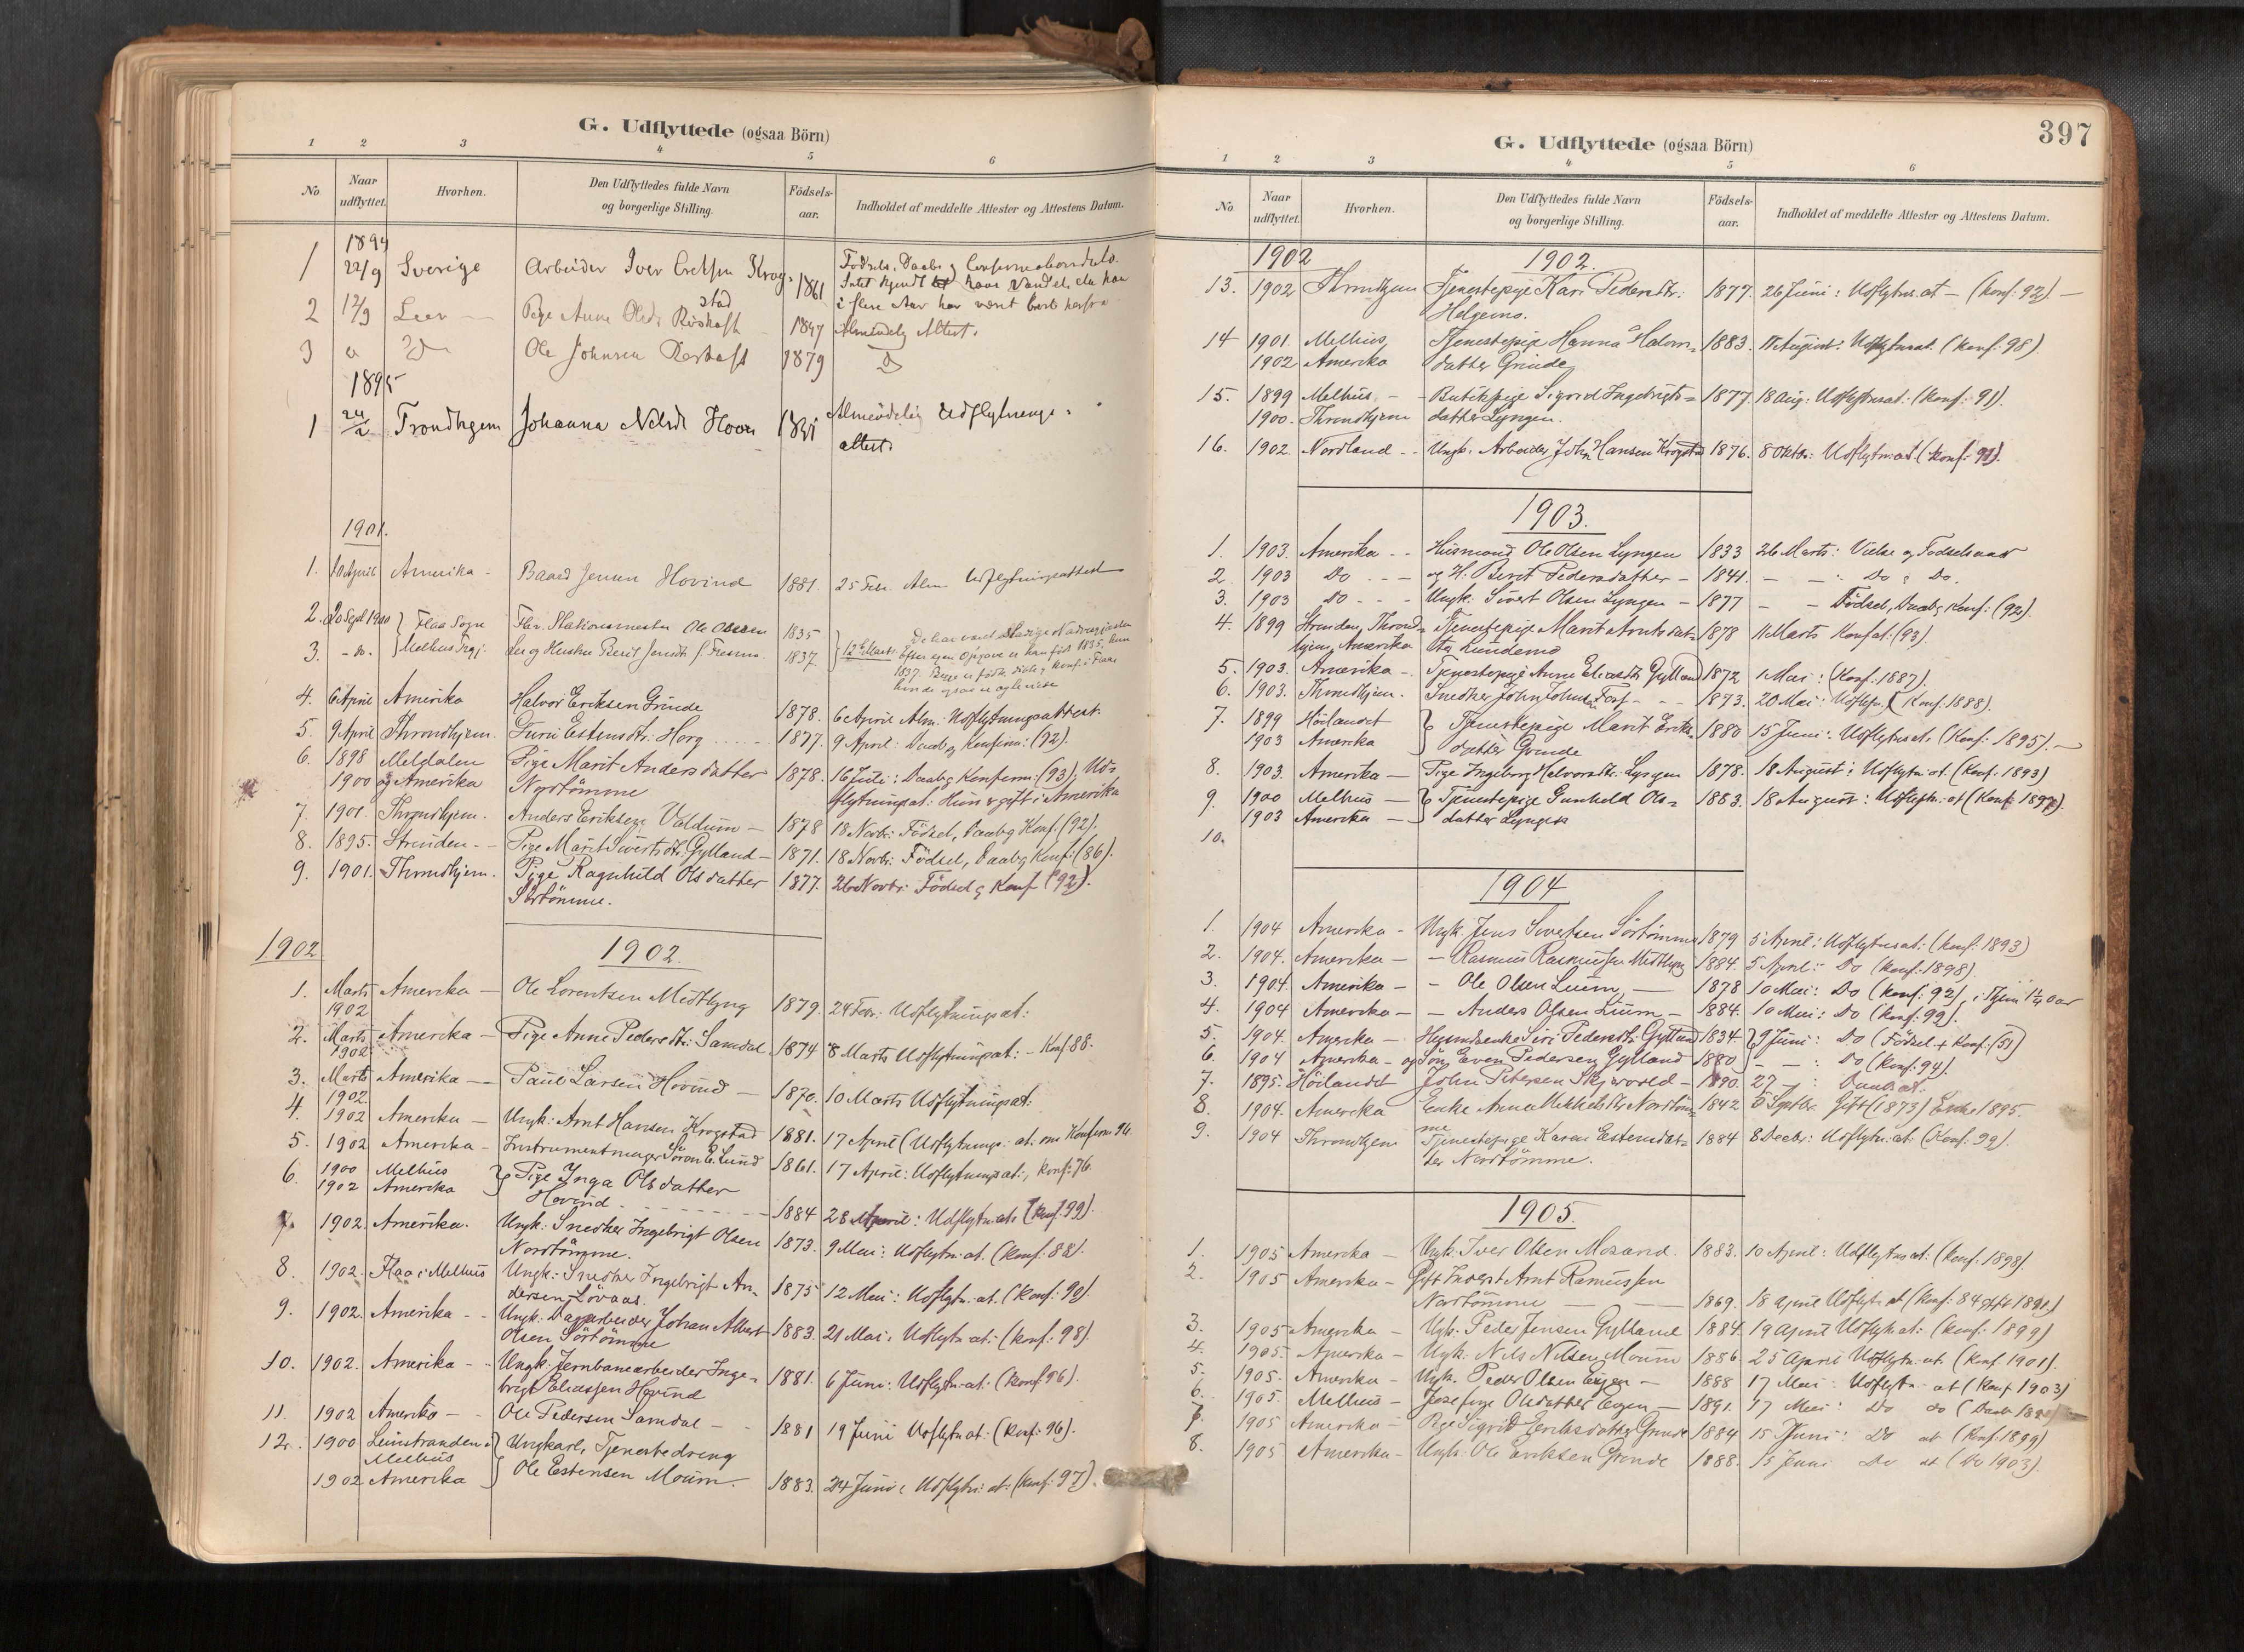 G. Udflyttede (ogsaa Börn)
1 2 3 4 5 6
No Naar udflyttet. Hvorhen. Den Udflyttedes fulde Navn og borgerlige Stilling. Födsels-aar. Indholdet af meddelte Attester og Attestens Datum.
1894
1 22/9 Sverige Arbeider Iver Krog- 1861 Fødsels, Daabs
stad i flere Aar har været borte herfra
2 12/9 Leer Pige Anne Olsdr 1847 Almindelig Attest.
3 Ole Johnsen 1879
1895
1 24/2 Trondhjem Johanna Nilsdr Almindelig Udflytnings-
attest.
1901.
1. 10 April Amerika - Baard Jensen Hovind 1881. 25 Feb. Alm Udflytningsattest
2. 20 Sept 1900 Flaa Sogn Fhv. Stationsmester Ole Olsen 1835
3. - Do. Melhus Prgj. og Hustru Berit Jensdr 1837. 12 Marts
4. 6 April Amerika Halvor Eriksen Grinde 1878. 6 April Alm. Udflytningsattest.
5. 9 April Throndhjem. Guru Estensdtr: Horg 1877. 9 April: Daab og Konfirm: (92).
6. 1898 Meldalen Pige Marit Andersdatter 1878. 16 Juli: Daab og Konfirm: (93), Ud-
1900 og Amerika Nordtømme flytningsat: Hun er gift i Amerika
7. 1901. Throndhjem. Anders Eriksen Valdum - 1878 18 Novbr: Födsel, Daab og Konf. (92).
8. 1895. Strinden. - Pige Marit Sivertsdtr. Gylland - 1871. 18 Novbr: Födsel, Daab og Konf: (86).
9. 1901. Throndhjem. Pige Ragnhild Olsdatter 1877. 26 Novbr: Födsel og Konf (92).
Sörtömme.
1902 1902.
1. Marts Amerika - Ole Lorentsen Midtlyng 1879. 24 Febr: Udflytningsat:
1902
2. Marts Amerika - Pige Anne Pedersdtr: Samdal 1874 8 Marts Udflytningsat: - Konf 88.
1902
3. Marts Amerika - Paul Larsen Hovind - 1870. 10 Marts Udflytningsat:
1902.
4. 1902 Amerika - Ungk: Arnt Hansen Krogstad 1881. 17 April (Udflytnings. at: om Konfirm 96.
5. 1902 Amerika - Instrumentmager Sören E. Lund 1861. 17 April: Udflytningsat:, Konf: 76.
6. 1900 Melhus Pige Inga Olsdatter
1902 Amerika Hovind. - 1884 28 April: Udflytn:at: (Konf. 99).
7. 1902. Amerika. Ungk: Snedker Ingebrigt Olsen 1873. 9 Mai: Udflytn: at. (Konf: 88).
Nordtömme.
8. 1902. Flaa i Melhus Ungk: Snedker Ingebrigt An- 1875 12 Mai: Udflytn. at. (Konf: 90).
dersen Lövaas.
9. 1902. Amerika - - Ungk: Dagarbeider Johan Albert 1883. 21 Mai: Udflytn at: (Konf. 98).
Olsen Sörtömme
10. 1902. Amerika - Ungk: Jernbanearbeider Inge- 1881. 6 Juni: Udflytn: at: (Konf 96).
brigt Eliassen Hovind
11. 1902 Amerika - Ole Pedersen Samdal - 1881 19 Juni Udflytn at: (Konf: 96).
12. 1900 Leinstranden Ungkarl, Tjenestedreng
Melhus
1902 Amerika Ole Estensen Moum. 1883. 24 Juni: Udflytn: at: (Konf: 97).
397
G. Udflyttede (ogsaa Börn)
1 2 3 4 5 6
No Naar udflyttet. Hvorhen. Den Udflyttedes fulde Navn og borgerlige Stilling. Födsels-aar. Indholdet af meddelte Attester og Attestens Datum.
1902 1902.
13. 1902 Throndhjem Tjenestepige Kari Pedersdtr: 1877. 26 Juni: Udflytns. at - (Konf: 92) -
Helgemo.
14 1901. Melhus, Tjenestepige Hanna Halvors- 1883. August: Udflytnsat. (Konf. 98).
1902 Amerika datter Grinde
15. 1899 Melhus - Butikpige Sigrid Ingebrigts- 1877. 18 Aug: Udflytnsat. (Konf: 91).
1900. Throndhjem datter Lyngen.
16. 1902. Nordland - - Ungk. Arbeider John Hansen Krogstad 1876. 8 Oktbr: Udflytn:at. (Konf: 91).
1903.
1. 1903. Amerika - - Husmand Ole Olsen Lyngen 1833 26 Marts: Vielse og Fødselsaar
2. 1903 Do - - og H: Berit Pedersdatter - 1841. - - Do : Do.
3. 1903 Do - - Ungk: Sivert Olsen Lyngen - 1877 - - Födsel, Daab og Konf: (92).
4. 1899 Strinden, Thrond- Tjenestepige Marit Arntsdat- 1878 11 Marts Konfat. (93).
hjem, Amerika ter Lundemo
5. 1903. Amerika - Tjenestepige Anne Eliasdtr Gylland 1872 1 Mai: (Konf. 1887).
6. 1903. Throndhjem. Snedker John Johnsen - - 1873. 20 Mai: Udflytn. (Konf: 1888).
7. 1899 Höilandet Tjenestepige Marit Eriks- 1880 15 Juni: Udflytnsat. (Konf: 1895). -
1903 Amerika datter Grinde
8. 1903. Amerika - Pige Ingeborg Halvorsdtr. Lyngen 1878. 18 August: Udflytn: at. (Konf: 1893)
9. 1900 Melhus - Tjenestepige Gunhild Ols- 1883. 18 August: Udflytn: at (Konf: 1897).
1903 Amerika - datter Lyngen
10.
1904
1. 1904 Amerika - Ungk. Jens Sivertsen Sörtömme 1879 5 April: Udflytnsat: (Konf: 1893)
2. 1904. Amerika - - Rasmus Rasmussen Midtlyng 1884. 5 April: Do (Konf: 1898).
3. 1904. Amerika - - Ole Olsen Lium, - 1878 10 Mai: Do (Konf: 92),
4. 1904 Amerika - - Anders Olsen Lium - 1884. 10 Mai: Do (Konf: 99).
5. 1904. Amerika - Husmdsenke Siri Pedersdtr. Gylland 1834. 9 Juni: Do (Födsel + Konf: (51)
6. 1904 Amerika - og Søn Even Pedersen Gylland 1880 - - : Do (Konf: 94).
7. 1895. Höilandet John Petersen Skjervold - 1890. 27 - : Daabsat.
8. 1904. Amerika Enke Anna Mikkelsdtr Nordtöm- 1842 5 Septbr. Gift (1873) Enke 1895.
me
9. 1904 Throndhjem Tjenestepige Karen Estensdat- 1884 8 Decbr: Udflytn: at: (Konf: 99).
ter Nordtömme.
1905.
1. 1905 Amerika - Ungk. Iver Olsen Mosand. 1883. 10 April: Udflytns at: (Konf: 1898).
2. 1905 Amerika - Gift Arnt Rasmussen
Nordtömme - 1869. 18 April Udflytn at (Konf: 84 gift 1891.)
3. 1905 Amerika - Ugk. Peder Jensen Gylland 1884. 19 April Udflytn at: (Konf: 1899)
4. 1905. Amerika - Ugk: Nils Nilsen Moum 1886. 25 April Udflytn: at. (Konf 1901).
5. 1905. Amerika - Ugk. Peder Olsen Eggen - 1888 17 Mai: Udflytn at (Konf 1903)
6. 1905. Melhus - Josefine Olsdatter Eggen - 1891. 17 Mai: Do do (Daab
7. 1905 Amerika - Pige Sigrid Eriksdatter Grinde 1884 15 Juni: Do at (Konf: 1899)
8. 1905 Amerika - Ungk: Ole Eriksen Grinde 1888. 15 Juni Do at (Do 1903).